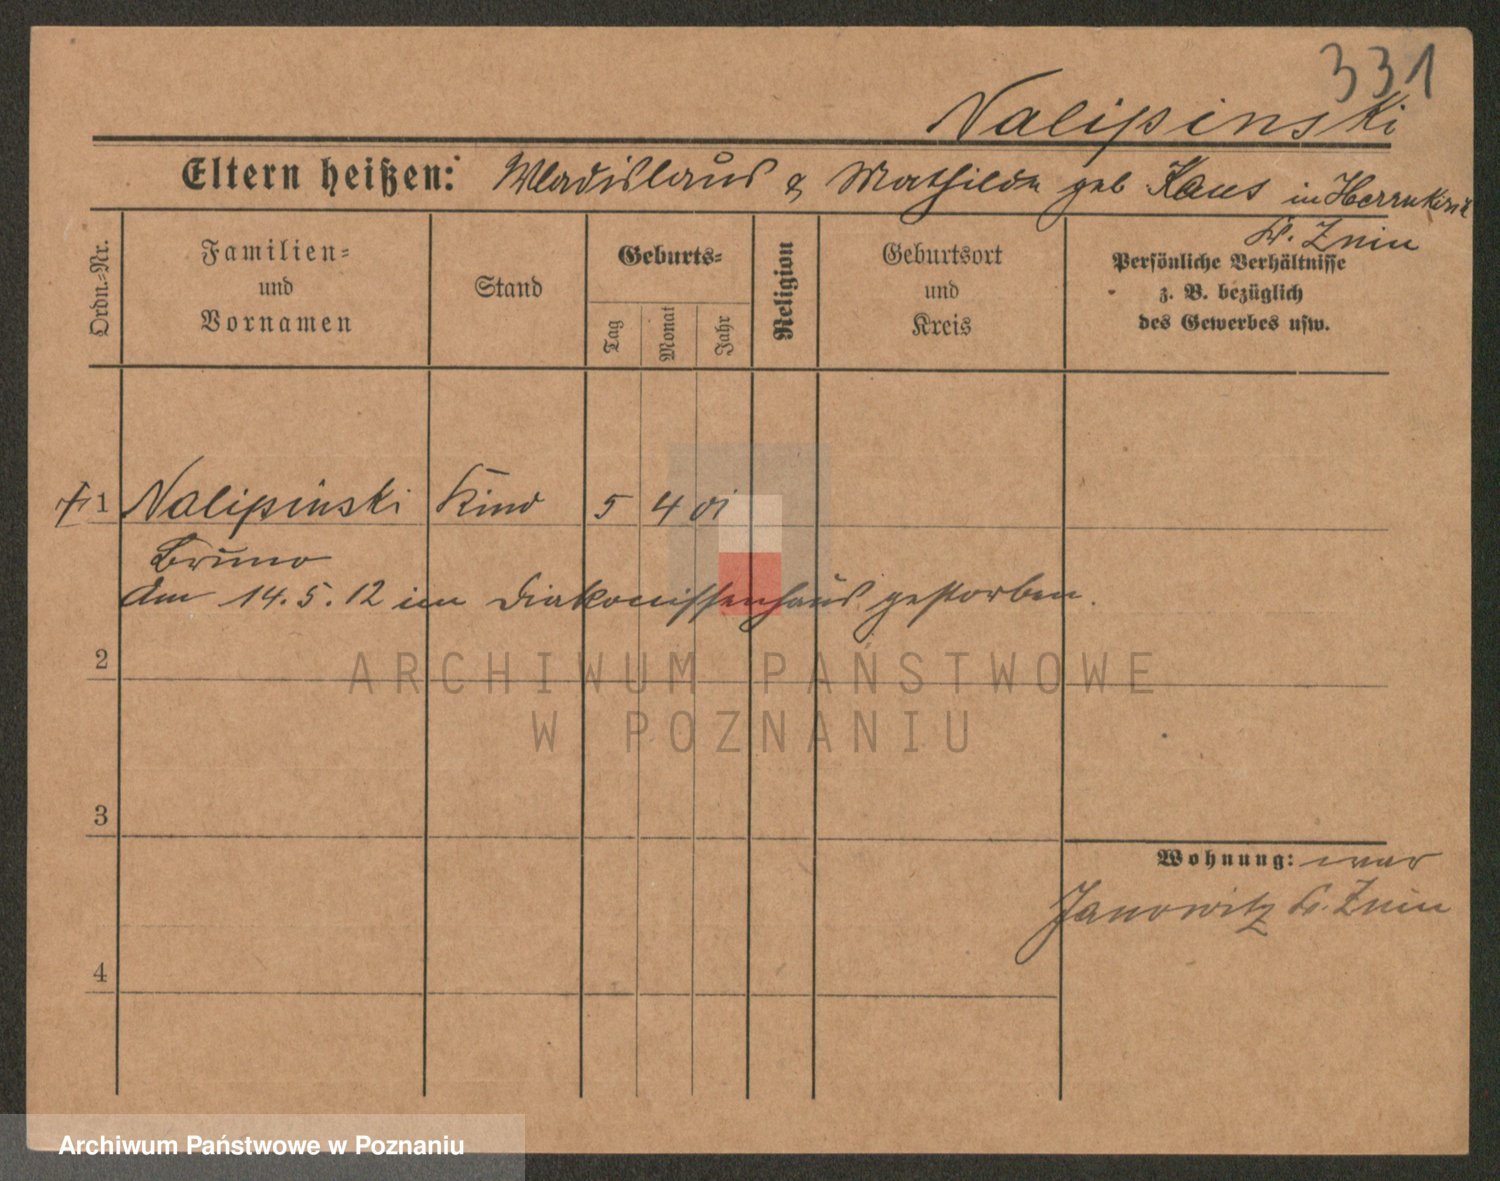 331
Nalipinski
Eltern heißen: Wladislaus & Mathilde geb Kaus in Herrnkirch
Kr. Znin
Ordn.-Nr.
Familien- und Vornamen
Stand
Geburts-
Tag
Monat
Jahr
Religion
Geburtsort und Kreis
Persönliche Verhältnisse
z. B. bezüglich
des Gewerbes usw.
1 Nalipinski Kind 5 4 01
Bruno
Am 14.5.12 im Diakonissenhaus gestorben.
2
ARCHIWUM PAŃSTWOWE
W POZNANIU
3
Wohnung: war
Janowitz Kr. Znin
4
Archiwum Państwowe w Poznaniu